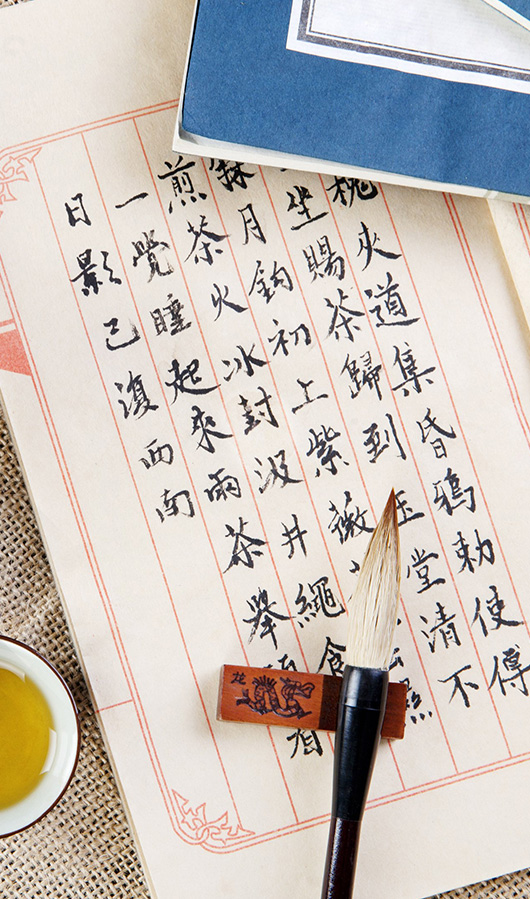 槐夾道集昏鴉敕使傳
坐賜茶歸到玉堂清不
寐月鉤初上紫薇照
煎茶火冰封汲井繩食
一覺睡起來兩茶舉看
日影已復西南
龙